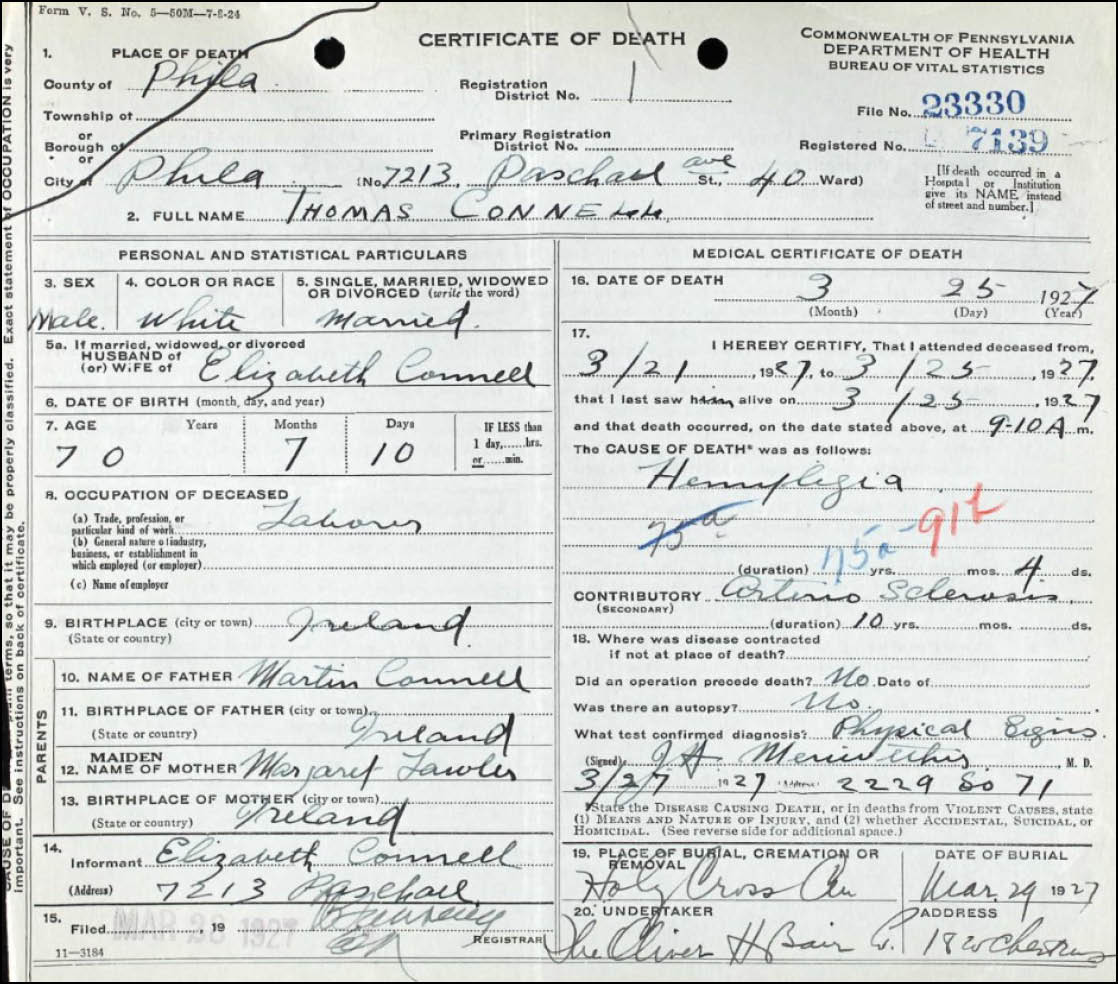 Form V. S. No. 5—50M—7-2-24
CERTIFICATE OF DEATH
COMMONWEALTH OF PENNSYLVANIA
DEPARTMENT OF HEALTH
BUREAU OF VITAL STATISTICS
1. PLACE OF DEATH
County of Phila
Registration District No. 1
File No. 23330
Township of
or
Borough of
Primary Registration District No.
Registered No. 7139
or
City of Phila (No. 7213, Paschall ave St., 40 Ward)
[If death occurred in a Hospital or Institution give its NAME instead of street and number.]
2. FULL NAME THOMAS CONNELL
PERSONAL AND STATISTICAL PARTICULARS
3. SEX Male.
4. COLOR OR RACE White
5. SINGLE, MARRIED, WIDOWED OR DIVORCED (write the word) Married.
5a. If married, widowed, or divorced
HUSBAND of
(or) WIFE of Elizabeth Connell
6. DATE OF BIRTH (month, day, and year)
7. AGE Years Months Days
70 7 10
IF LESS than
1 day,......hrs.
or......min.
8. OCCUPATION OF DECEASED
(a) Trade, profession, or
particular kind of work Laborer
(b) General nature of industry,
business, or establishment in
which employed (or employer)
(c) Name of employer
9. BIRTHPLACE (city or town) Ireland.
(State or country)
PARENTS
10. NAME OF FATHER Martin Connell
11. BIRTHPLACE OF FATHER (city or town)
(State or country) Ireland
12. MAIDEN NAME OF MOTHER Margaret Lawler
13. BIRTHPLACE OF MOTHER (city or town)
(State or country) Ireland
14.
Informant Elizabeth Connell
(Address) 7213 Paschall
15.
Filed MAR 28 1927, 19
REGISTRAR
11—3184
MEDICAL CERTIFICATE OF DEATH
16. DATE OF DEATH 3 25 1927
(Month) (Day) (Year)
17.
I HEREBY CERTIFY, That I attended deceased from,
3/21, 1927, to 3/25, 1927.
that I last saw him alive on 3/25, 1927
and that death occurred, on the date stated above, at 9-10A m.
The CAUSE OF DEATH* was as follows:
Hemyligia
75a
75a-91b
(duration) yrs. mos. 4 ds.
CONTRIBUTORY Arterio Sclerosis
(SECONDARY)
(duration) 10 yrs. mos. ds.
18. Where was disease contracted
if not at place of death?
Did an operation precede death? No. Date of
Was there an autopsy? No.
What test confirmed diagnosis? Physical Signs.
(Signed) J.H. , M. D.
3/27 1927 (Address) 2229 So 71
*State the DISEASE CAUSING DEATH, or in deaths from VIOLENT CAUSES, state
(1) MEANS AND NATURE OF INJURY, and (2) whether ACCIDENTAL, SUICIDAL, or
HOMICIDAL. (See reverse side for additional space.)
19. PLACE OF BURIAL, CREMATION OR REMOVAL
Holy Cross Cem
DATE OF BURIAL
Mar. 29 1927
20. UNDERTAKER
The Oliver H Bair Co.
ADDRESS
1820 Chestnut
terms, so that it may be properly classified. Exact statement of OCCUPATION is very
important. See instructions on back of certificate.